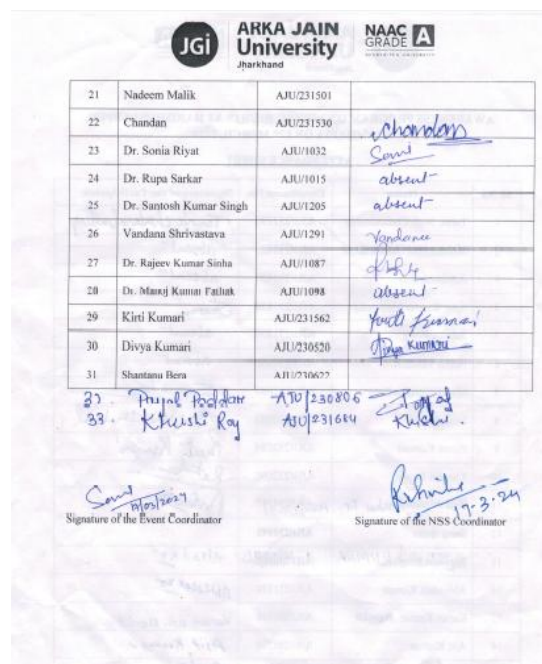 JGi ARKA JAIN University Jharkhand NAAC GRADE A
21 Nadeem Malik AJU/231501
22 Chandan AJU/231530 Chandan
23 Dr. Sonia Riyat AJU/1032 Soni
24 Dr. Rupa Sarkar AJU/1015 absent
25 Dr. Santosh Kumar Singh AJU/1205 absent
26 Vandana Shrivastava AJU/1291 Vandana
27 Dr. Rajeev Kumar Sinha AJU/1087
28 Dr. Manoj Kumar Pathak AJU/1098 absent
29 Kirti Kumari AJU/231562 Kirti Kumari
30 Divya Kumari AJU/230520 Divya Kumari
31 Shantanu Bera AJU/230622
Payal Poddar AJU/230806 Payal
33. Khushi Roy AJU/231684 Khushi.
19/03/2024
Signature of the Event Coordinator
17-3-24
Signature of the NSS Coordinator